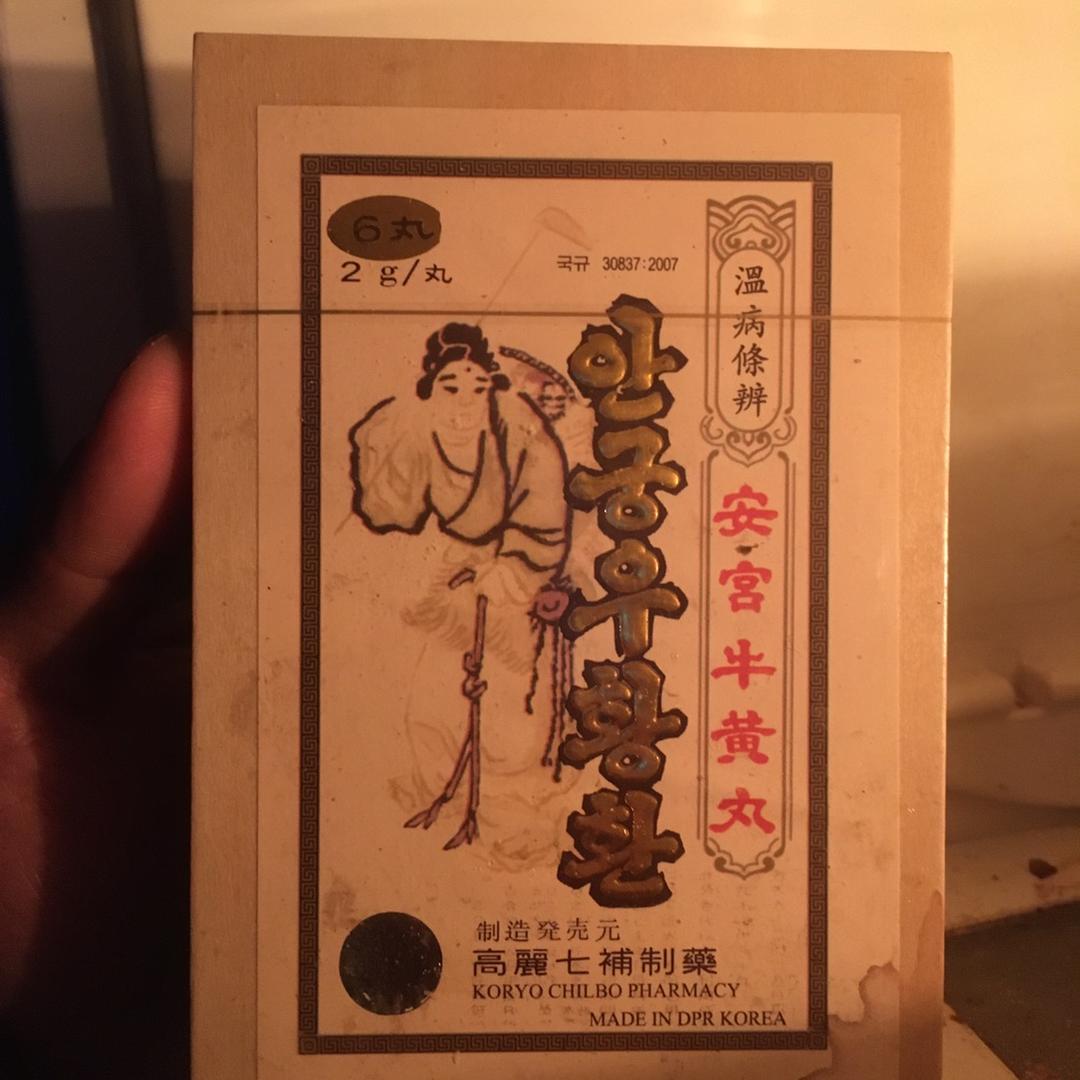 6丸
2 g/丸
국규 30837:2007
溫病條辨
안궁우황환
安宮牛黃丸
制造発売元
高麗七補制藥
KORYO CHILBO PHARMACY
MADE IN DPR KOREA